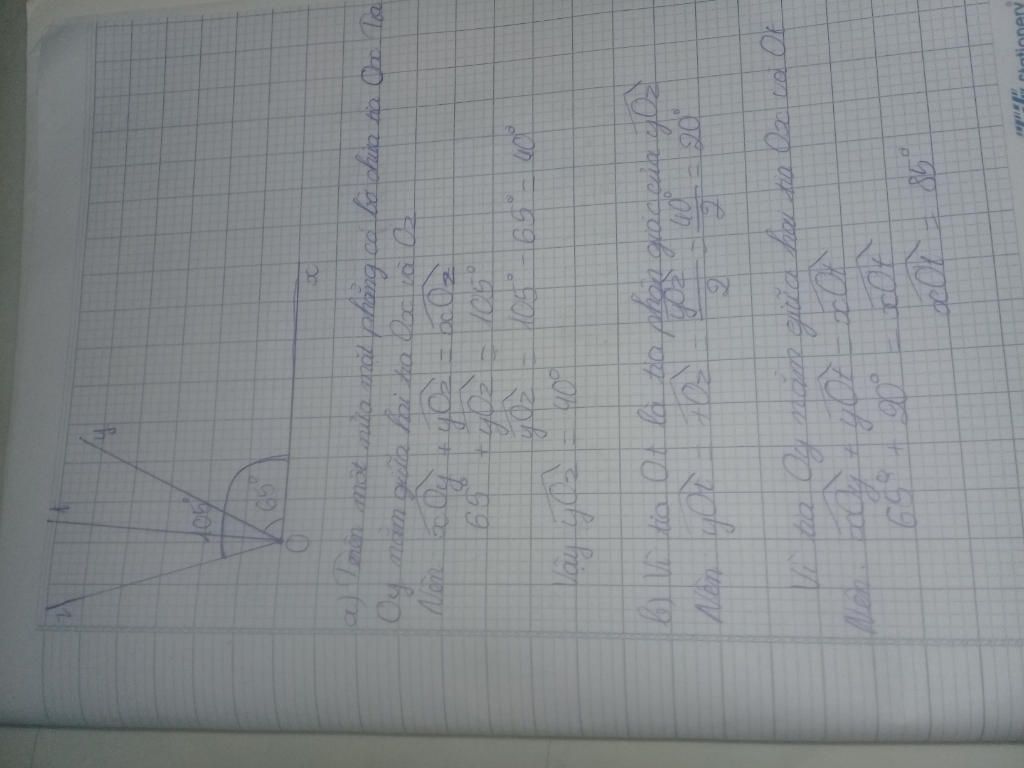 z
t
y
105°
65°
O
x
a) Trên một nửa mặt phẳng có bờ chứa tia Ox Ta
Oy nằm giữa hai tia Ox và Oz
Nên xOy + yOz = xOz
65° + yOz = 105°
yOz = 105° - 65° = 40°
Vậy yOz = 40°
b) Vì tia Ot là tia phân giác của yOz
Nên yOt = tOz = yOz/2 = 40°/2 = 20°
Vì tia Oy nằm giữa hai tia Ox và Ot
Nên xOy + yOt = xOt
65° + 20° = xOt
xOt = 85°
stationery